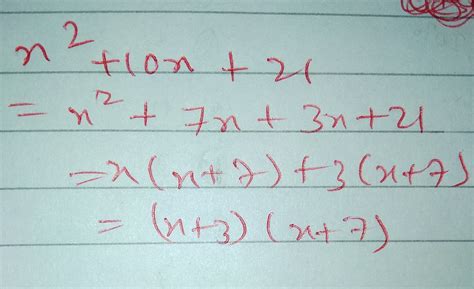 x² + 10x + 21
= x² + 7x + 3x + 21
= x(x+7) + 3(x+7)
= (x+3) (x+7)